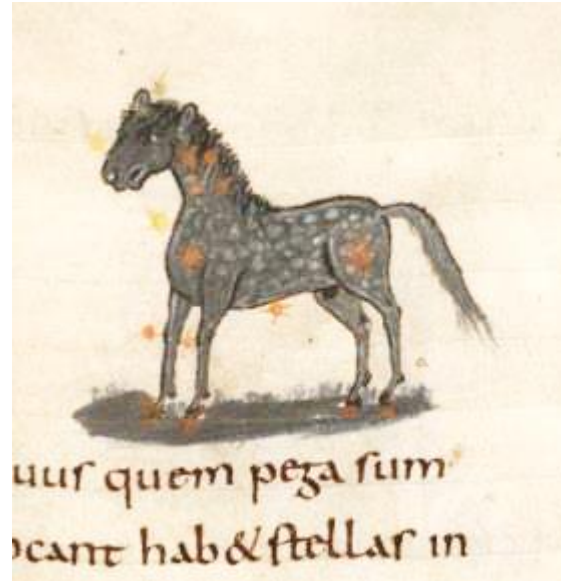 uus quem pega sum
ocant hab& stellas in